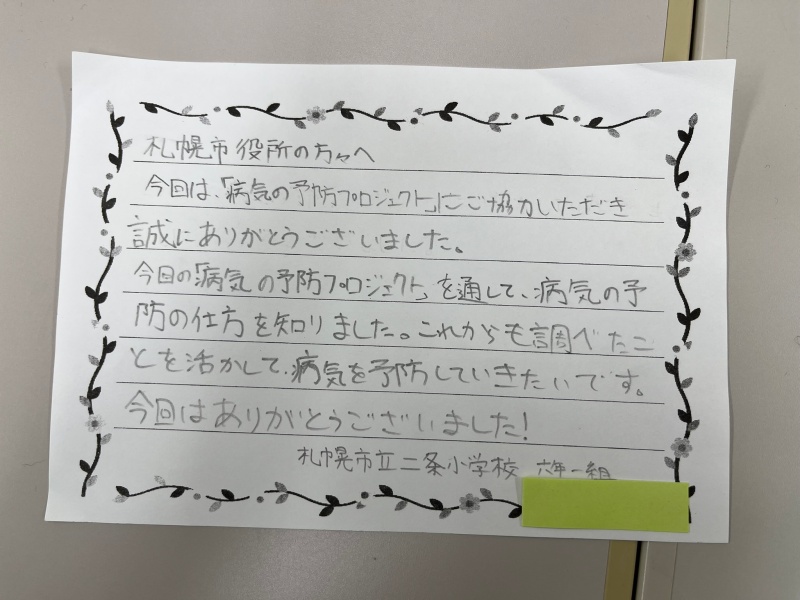 札幌市役所の方々へ
今回は、「病気の予防プロジェクト」にご協力いただき
誠にありがとうございました。
今日の「病気の予防プロジェクト」を通して、病気の予
防の仕方を知りました。これからも調べたこ
とを活かして、病気を予防していきたいです。
今回はありがとうございました!
札幌市立二条小学校 六年一組